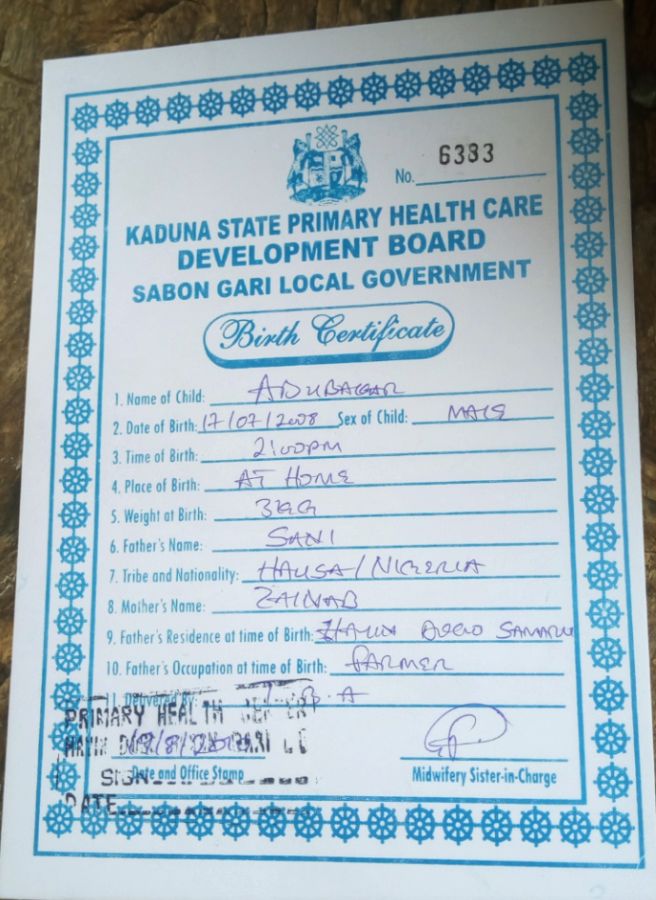 No. 6383
KADUNA STATE PRIMARY HEALTH CARE
DEVELOPMENT BOARD
SABON GARI LOCAL GOVERNMENT
Birth Certificate
1. Name of Child: ABUBAKAR
2. Date of Birth: 17/07/2008 Sex of Child: MALE
3. Time of Birth: 2:00PM
4. Place of Birth: AT HOME
5. Weight at Birth: 3KG
6. Father's Name: SANI
7. Tribe and Nationality: HAUSA/NIGERIA
8. Mother's Name: ZAINAB
9. Father's Residence at time of Birth: SAMARU
10. Father's Occupation at time of Birth: FARMER
11. Delivered By: T.B.A
PRIMARY HEALTH CENTER
SIGN
Date and Office Stamp Midwifery Sister-in-Charge
DATE